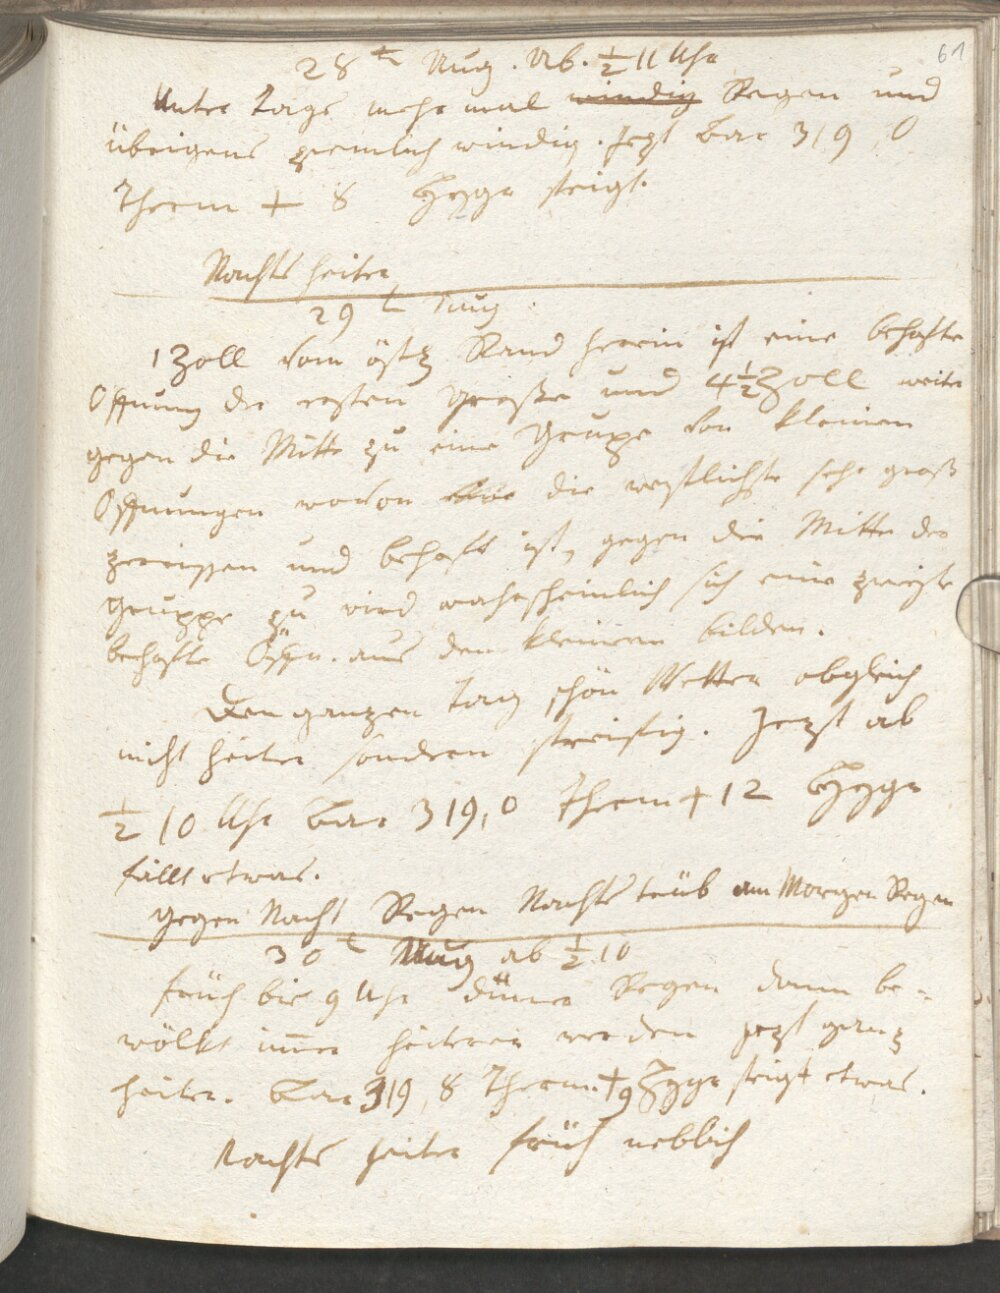 61
28t Aug. Ab. ½ 11 Uhr
Unter Tags mehr mal windig Regen und
übrigens ziemlich windig. Jezt Bar 319,0
Therm + 8 Hygr steigt.
Nachts heiter
29t Aug.
1 Zoll vom östl Rand herein ist eine behofte
Öffnung der ersten Größe und 4½ Zoll weiter
gegen die Mitte zu eine Grupe von kleinen
Öffnungen wovon die westlichste sehr groß
zerrissen und behoft ist, gegen die Mitte der
Gruppe zu wird wahrscheinlich sich eine zweite
behofte Öffn. aus den kleinern bilden.
Den ganzen Tag schön Wetter obgleich
nicht heiter sondern streifig. Jezt ab
½ 10 Uhr Bar 319,0 Therm + 12 Hygr
fällt etwas.
Gegen Nacht Regen Nachts trüb am Morgen Regen
30t Aug ab ½ 10
früh bis 9 Uhr dünner Regen dann be-
wölkt immer heiterer werden jezt ganz
heiter. Bar 319,8 Therm. + 9 Hygr steigt etwas.
Nachts heiter früh neblich